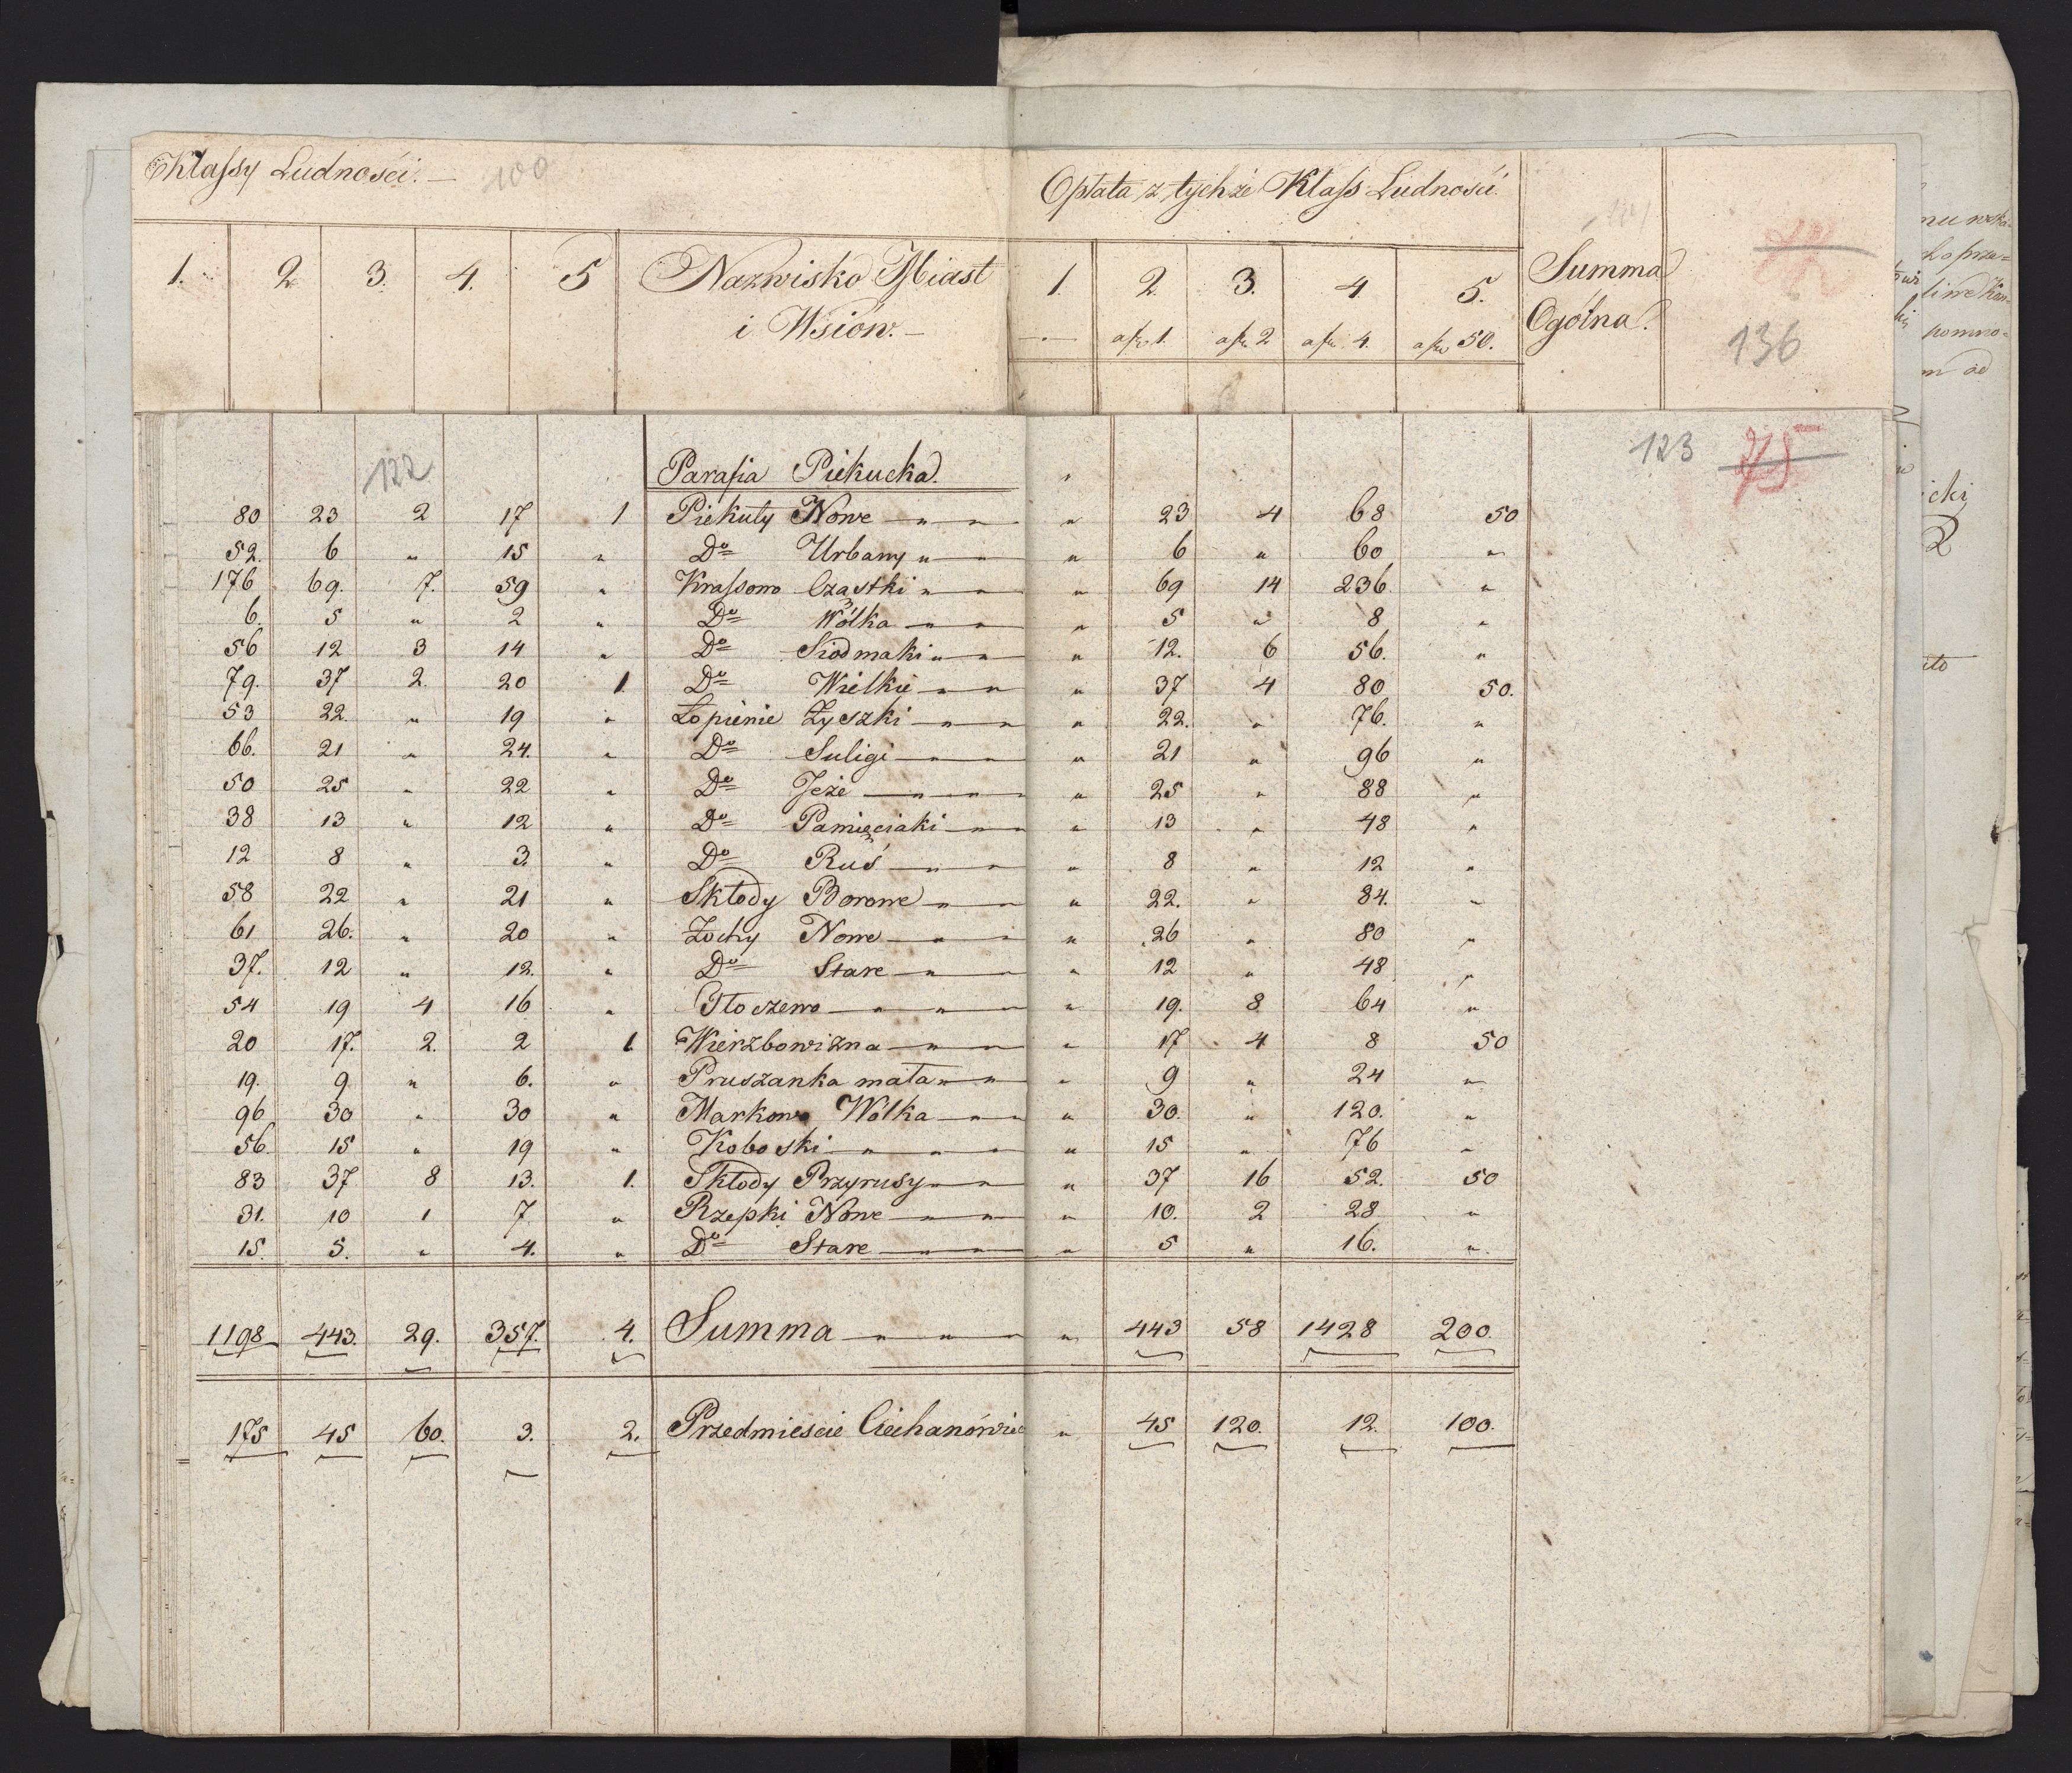 Klassy Ludności. — 100
Opłata z tychże Klass Ludności.
1. 2 3. 4. 5 Nazwisko Miast i Wsiów. —
1. 2. 3. 4. 5. Summa Ogólna.
a fl. 1. a fl. 2 a fl. 4. a fl. 50.
136
122 Parafia Piekucka. 123 75
80 23 2 17 1 Piekuty Nowe — " — " — " 23 4 68 50
52. 6 " 15 " Do Urbany " — " — " 6 " 60 "
176 69. 7. 59 " Krassowo Cząstki " — " — " 69 14 236. "
6. 5 " 2 " Do Wólka — " — " " 5 " 8 "
56 12 3 14 " Do Siodmaki " — " " 12. 6 56. "
79. 37 2. 20 1. Do Wielkie — " — " " 37 4 80 50.
53 22. " 19 " Łopienie Zyszki — " — " " 22. " 76. "
66. 21 " 24. " Do Suligi — " — " " 21 " 96 "
50 25 " 22 " Do Jeże — " — " " 25 " 88 "
38 13 " 12 " Do Pamięciaki — " — " " 13 " 48 "
12 8 " 3. " Do Ruś — " — " " 8 " 12 "
58 22 " 21 " Skłody Borowe — " — " " 22. " 84. "
61 26. " 20 " Żochy Nowe — " — " " 26 " 80 "
37. 12 " 12. " Do Stare — " — " " 12 " 48 "
54 19 4 16 " Tłoczewo — " — " — " " 19. 8 64 "
20 17. 2. 2 1. Wierzbowizna — " — " " 17 4 8 50
19. 9 " 6. " Pruszanka mała " — " " 9 " 24 "
96 30 " 30 " Markowo Wólka — " — " " 30. " 120. "
56. 15 " 19 " Koboski — " — " — " " 15 " 76 "
83 37 8 13. 1. Skłody Przyrusy — " — " " 37 16 52. 50
31. 10 1 7 " Rzepki Nowe — " — " " 10. 2 28 "
15. 5. " 4. " Do Stare — " — " " 5 " 16. "
1198 443. 29. 357. 4. Summa — " — " — " " 443 58 1428 200.
175 45 60. 3. 2. Przedmieście Ciechanówiec " 45 120. 12. 100.